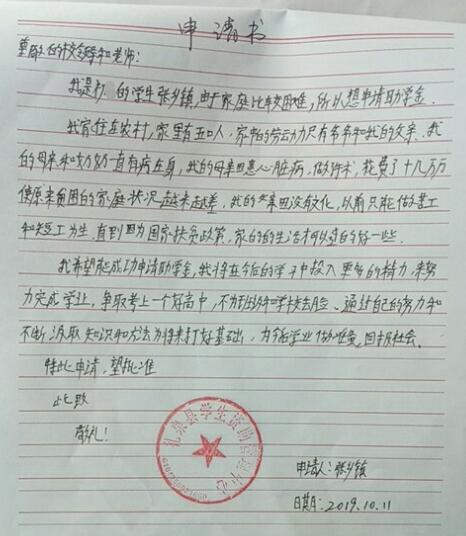 申请书
尊敬的校领导和老师:
我是初一的学生张乡镇,由于家庭比较困难,所以想申请助学金.
我家住在农村,家里有五口人,家中的劳动力只有爷爷和我的父亲.我
的母亲和奶奶一直有病在身,我的母亲因患心脏病,做手术,花费了十几万
使原来贫困的家庭状况越来越差,我的父亲因没有文化,以前只能做苦工
和短工为生.直到因为国家扶贫政策,家的的生活才可以过的好一些.
我希望能成功申请助学金,我将在今后的学习中投入更多的精力来努
力完成学业,争取考上一个好高中,不为班级和学校丢脸.通过自己的努力和
不断汲取知识和方法为将来打好基础,为今后学业做准备,回报社会.
特此申请,望批准
此致
敬礼!
县学生资助管理中心
申请人:张乡镇
日期:2019.10.11